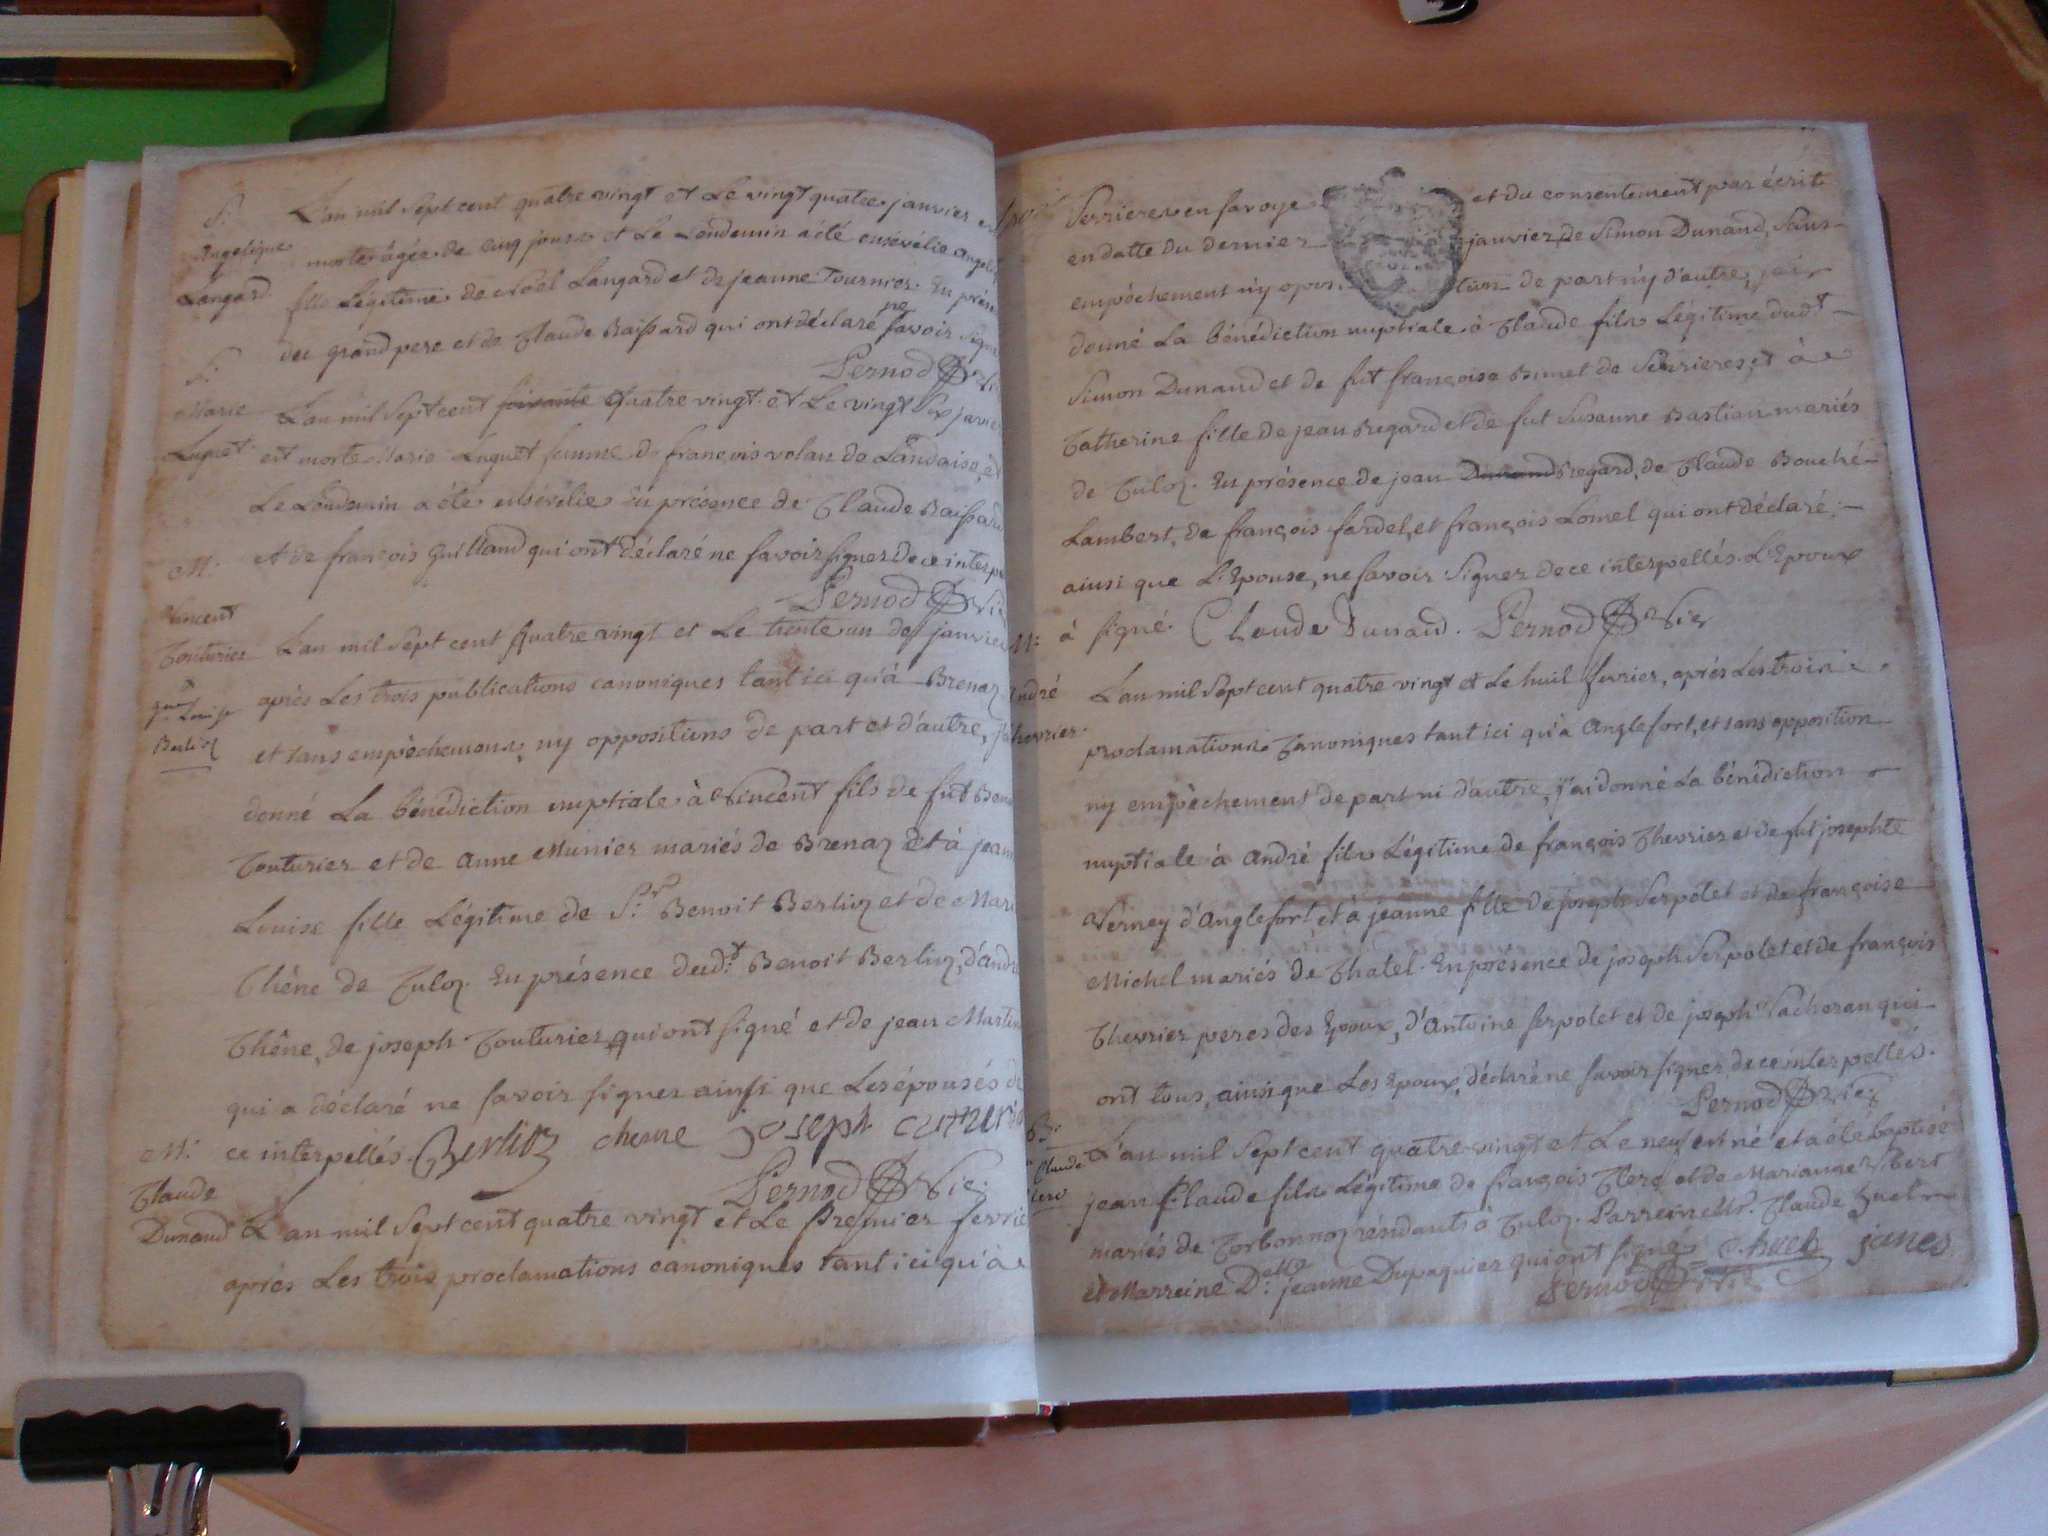 S.
Angelique
Langard
L'an mil sept cent quatre vingt et Le vingt quatre janvier est
morte âgée de cinq jours et Le Lendemain a été ensévélie Angeliq
fille Légitime de Noël Langard et de jeanne Tournier. En prése
du grand pere et de Claude Baissard qui ont déclaré ne savoir signe
Pernod Vic
S.
Marie
Luquet
L'an mil sept cent soisante quatre vingt et Le vingt six javie
est morte Marie Luquet femme de françois volan de Landaise, et
Le Lendemain a été ensévélie En présence de Claude Baissard
et de françois Guilland qui ont déclaré ne savoir signer de ce interpe
Pernod Vic
M.
Vincent
Couturier
à
Louise
Berlioz
L'an mil sept cent quatre vingt et Le trente un de janvier
après Les trois publications canoniques tant ici qu'à Brenaz
et sans empêchemens, ny oppositions de part et d'autre, j'ai
donné La bénédiction nuptiale à Vincent fils de fut Beno
Couturier et de Anne Munier mariés de Brenaz et à jean
Louise fille Légitime de Sr. Benoit Berlioz et de Mari
Chêne de Culoz. En présence dudt. Benoit Berlioz, d'andré
Chêne, de joseph Couturier qui ont signé et de jean Martin
qui a déclaré ne savoir signer ainsi que Les épousés de
ce interpellés. Berlioz chenne joseph cuturie
Pernod Vic.
M.
Claude
Dunand
L'an mil sept cent quatre vingt et Le Premier fevrie
après Les trois proclamations canoniques tant ici qu'à
Serrieres en savoye et du consentement par écrit
en datte du dernier janvier, de Simon Dunand, sans
empêchement ny opposition de part ny d'autre, j'ai
donné La bénédiction nuptiale à Claude fils Légitime dudt.
Simon Dunand et de fut françoise Brunet de Serrieres, et à
Catherine fille de jean Regard et de fut Susanne Bastian mariés
de Culoz. En présence de jean Dunand Regard, de Claude Bouché
Lambert, de françois fardel, et françois Lomel qui ont déclaré
ainsi que L'Epouse, ne savoir signer de ce interpellés. L'Epoux
à signé. Claude Dunand. Pernod Vic
M.
André
Chevrier
L'an mil sept cent quatre vingt et Le huit fevrier, après Les trois
proclamations Canoniques tant ici qu'à Anglefort, et sans opposition
ny empêchement de part ni d'autre, j'ai donné La bénédiction
nuptiale à André fils Légitime de françois Chevrier et de fut josephte
Verney d'Anglefort, et à jeanne fille de joseph Serpolet et de françoise
Michel mariés de Chatel. En présence de joseph Serpolet et de françois
Chevrier peres des Epoux, d'Antoine serpolet et de joseph Vacheran qui
ont tous, ainsi que Les Epoux, déclaré ne savoir signer de ce interpellés.
Pernod Vic
B.
Claude
Clerc
L'an mil sept cent quatre vingt et Le neuf est né et a été baptisé
jean Claude fils Légitime de françois Clerc et de Marianne Sibert
mariés de Corbonnoz résidants à Culoz. Parrein Mr. Claude huet
et Marreine Delle. jeanne Dupaquier qui ont signé C. huet janes
Pernod Vic